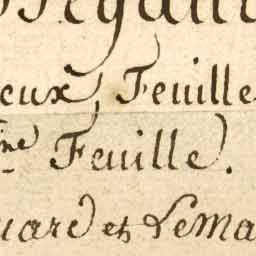 eux, Feuille
ne Feuille.
uare et LeMa